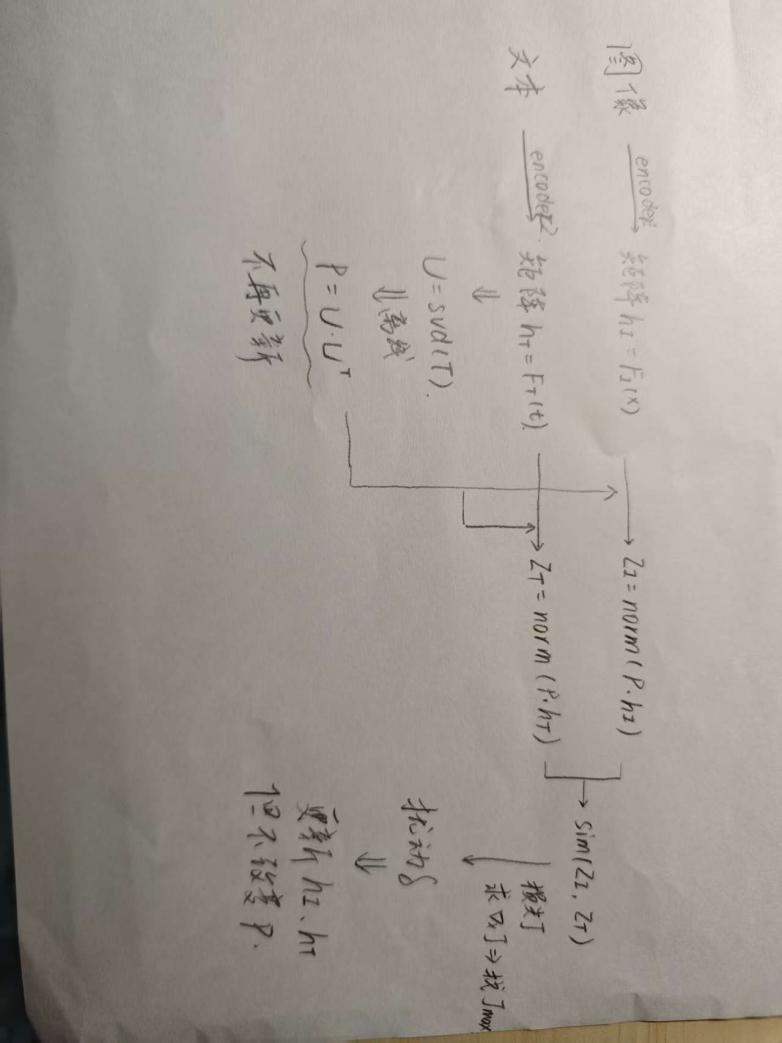 图像 encoder 矩阵 hI = FI(x) → ZI = norm(P·hI)
文本 encoder2. 矩阵 hT = FT(t) → ZT = norm(P·hT) → sim(ZI, ZT)
⇓
U = svd(T).
⇓ 离线
P = U·U^T
不再更新
损失J
求∇xJ ⇒ 找Jmax
扰动δ
⇓
更新 hI、hT
但不改变 P.